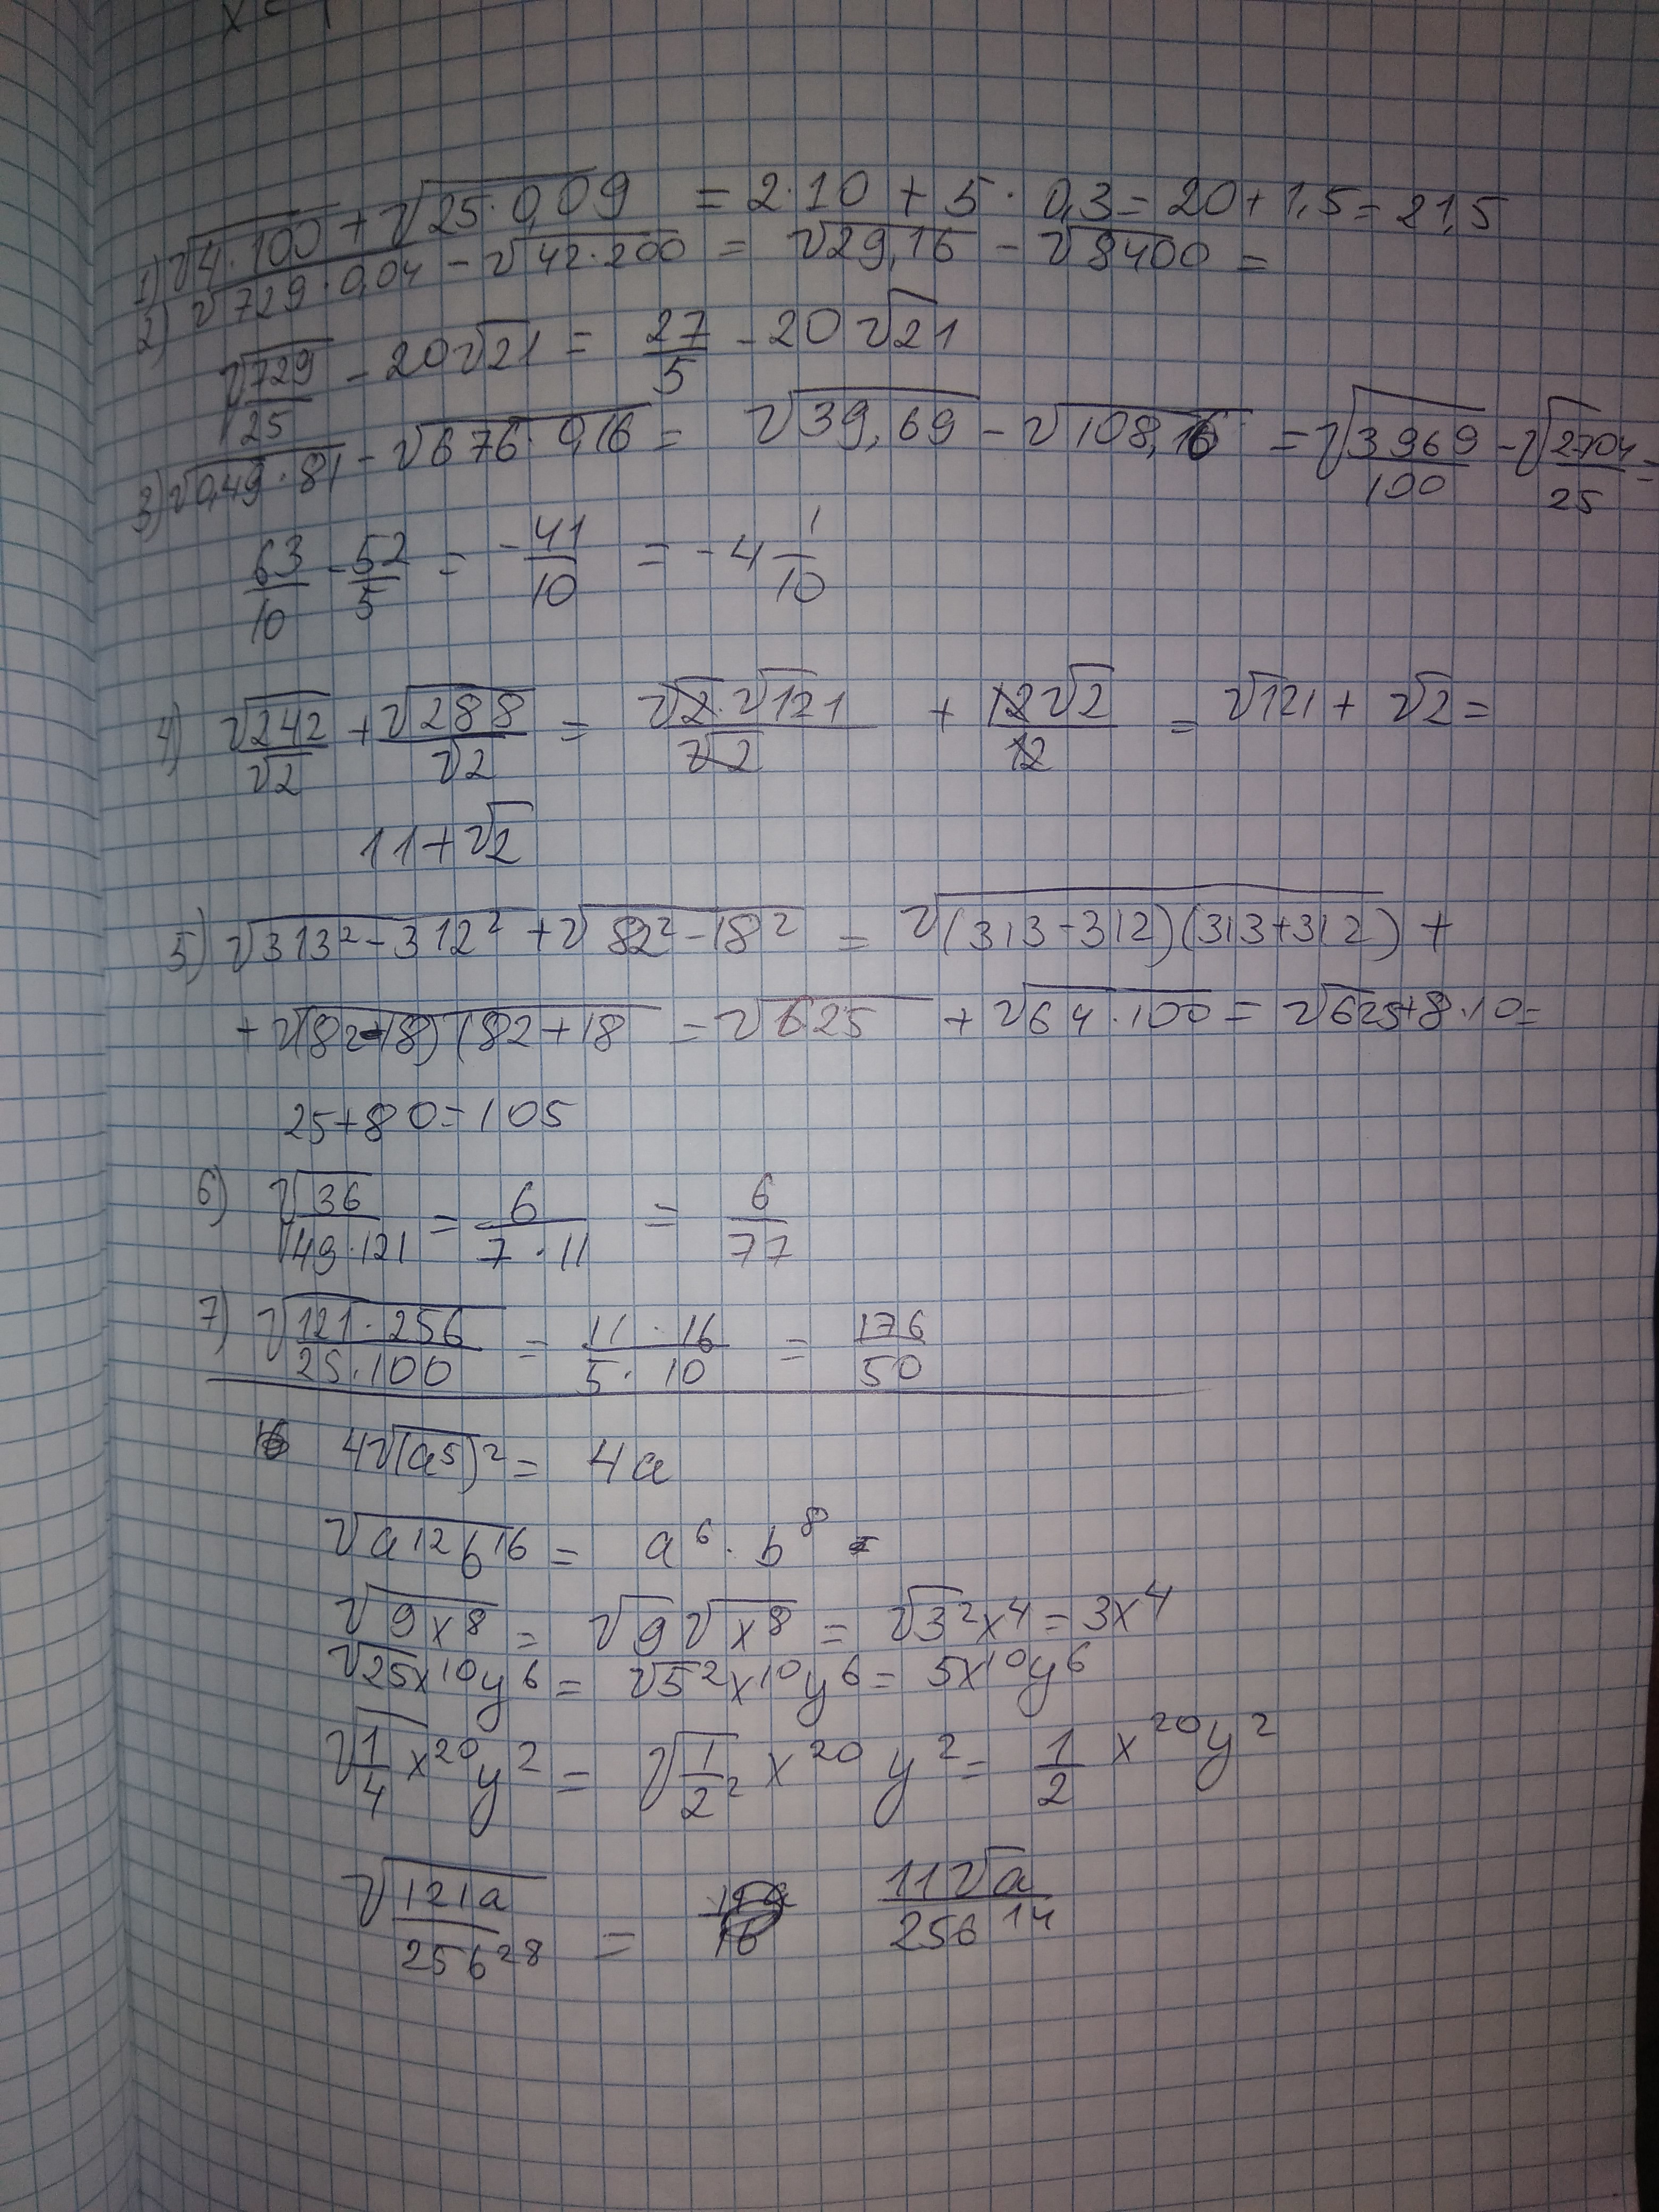 1) √4·100 + √25·0,09 = 2·10 + 5·0,3 = 20 + 1,5 = 21,5
2) √729·0,04 - √42·200 = √29,16 - √8400 =
√729/25 - 20√21 = 27/5 - 20√21
3) √0,49·81 - √676·0,16 = √39,69 - √108,16 = √3969/100 - √2704/25 =
63/10 - 52/5 = -41/10 = -4 1/10
4) √242/√2 + √288/√2 = √2·√121/√2 + 12√2/12 = √121 + √2 =
11+√2
5) √313²-312² + √82²-18² = √(313-312)(313+312) +
+ √(82-18)(82+18 = √625 + √64·100 = √625+8·10=
25+80=105
6) √36/49·121 = 6/7·11 = 6/77
7) √121·256/25·100 = 11·16/5·10 = 176/50
4√(a⁵)² = 4a
√a¹²b¹⁶ = a⁶·b⁸
√9x⁸ = √9√x⁸ = √3²x⁴ = 3x⁴
√25x¹⁰y⁶ = √5²x¹⁰y⁶ = 5x¹⁰y⁶
√1/4 x²⁰y² = √1/2² x²⁰ y² = 1/2 x²⁰y²
√121a/256²⁸ = 11√a/256¹⁴